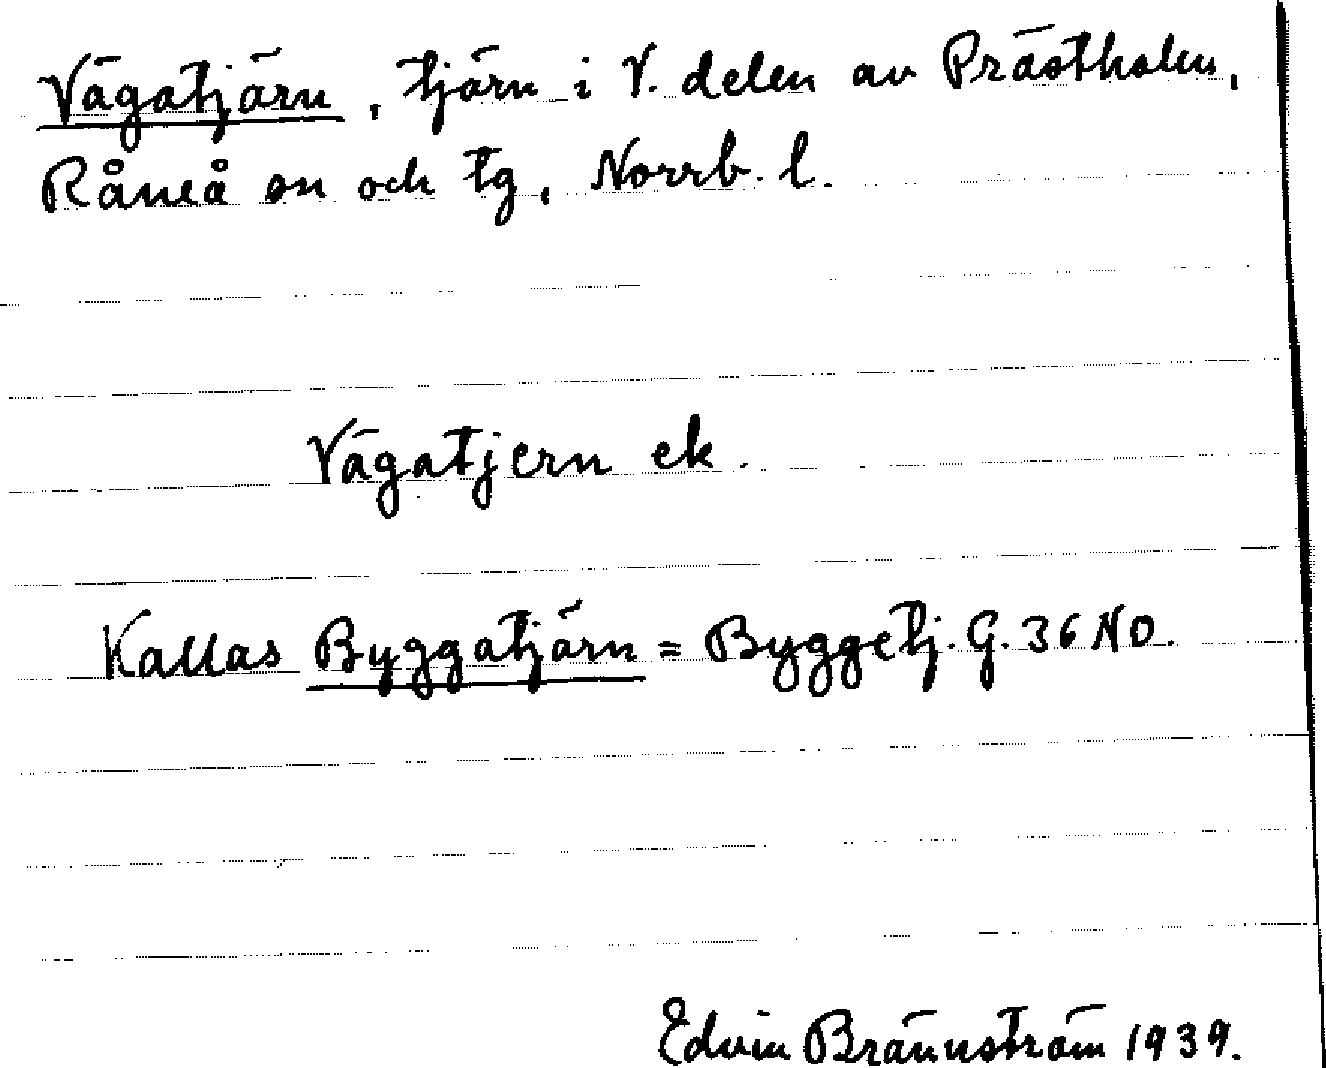 Vägatjärn, tjärn i V. delen av Prästholm,
Råneå sn och tg, Norrb. l.
Vägatjern ek.
Kallas Byggatjärn = Byggetj. G. 36 NO.
Edvin Brännström 1939.